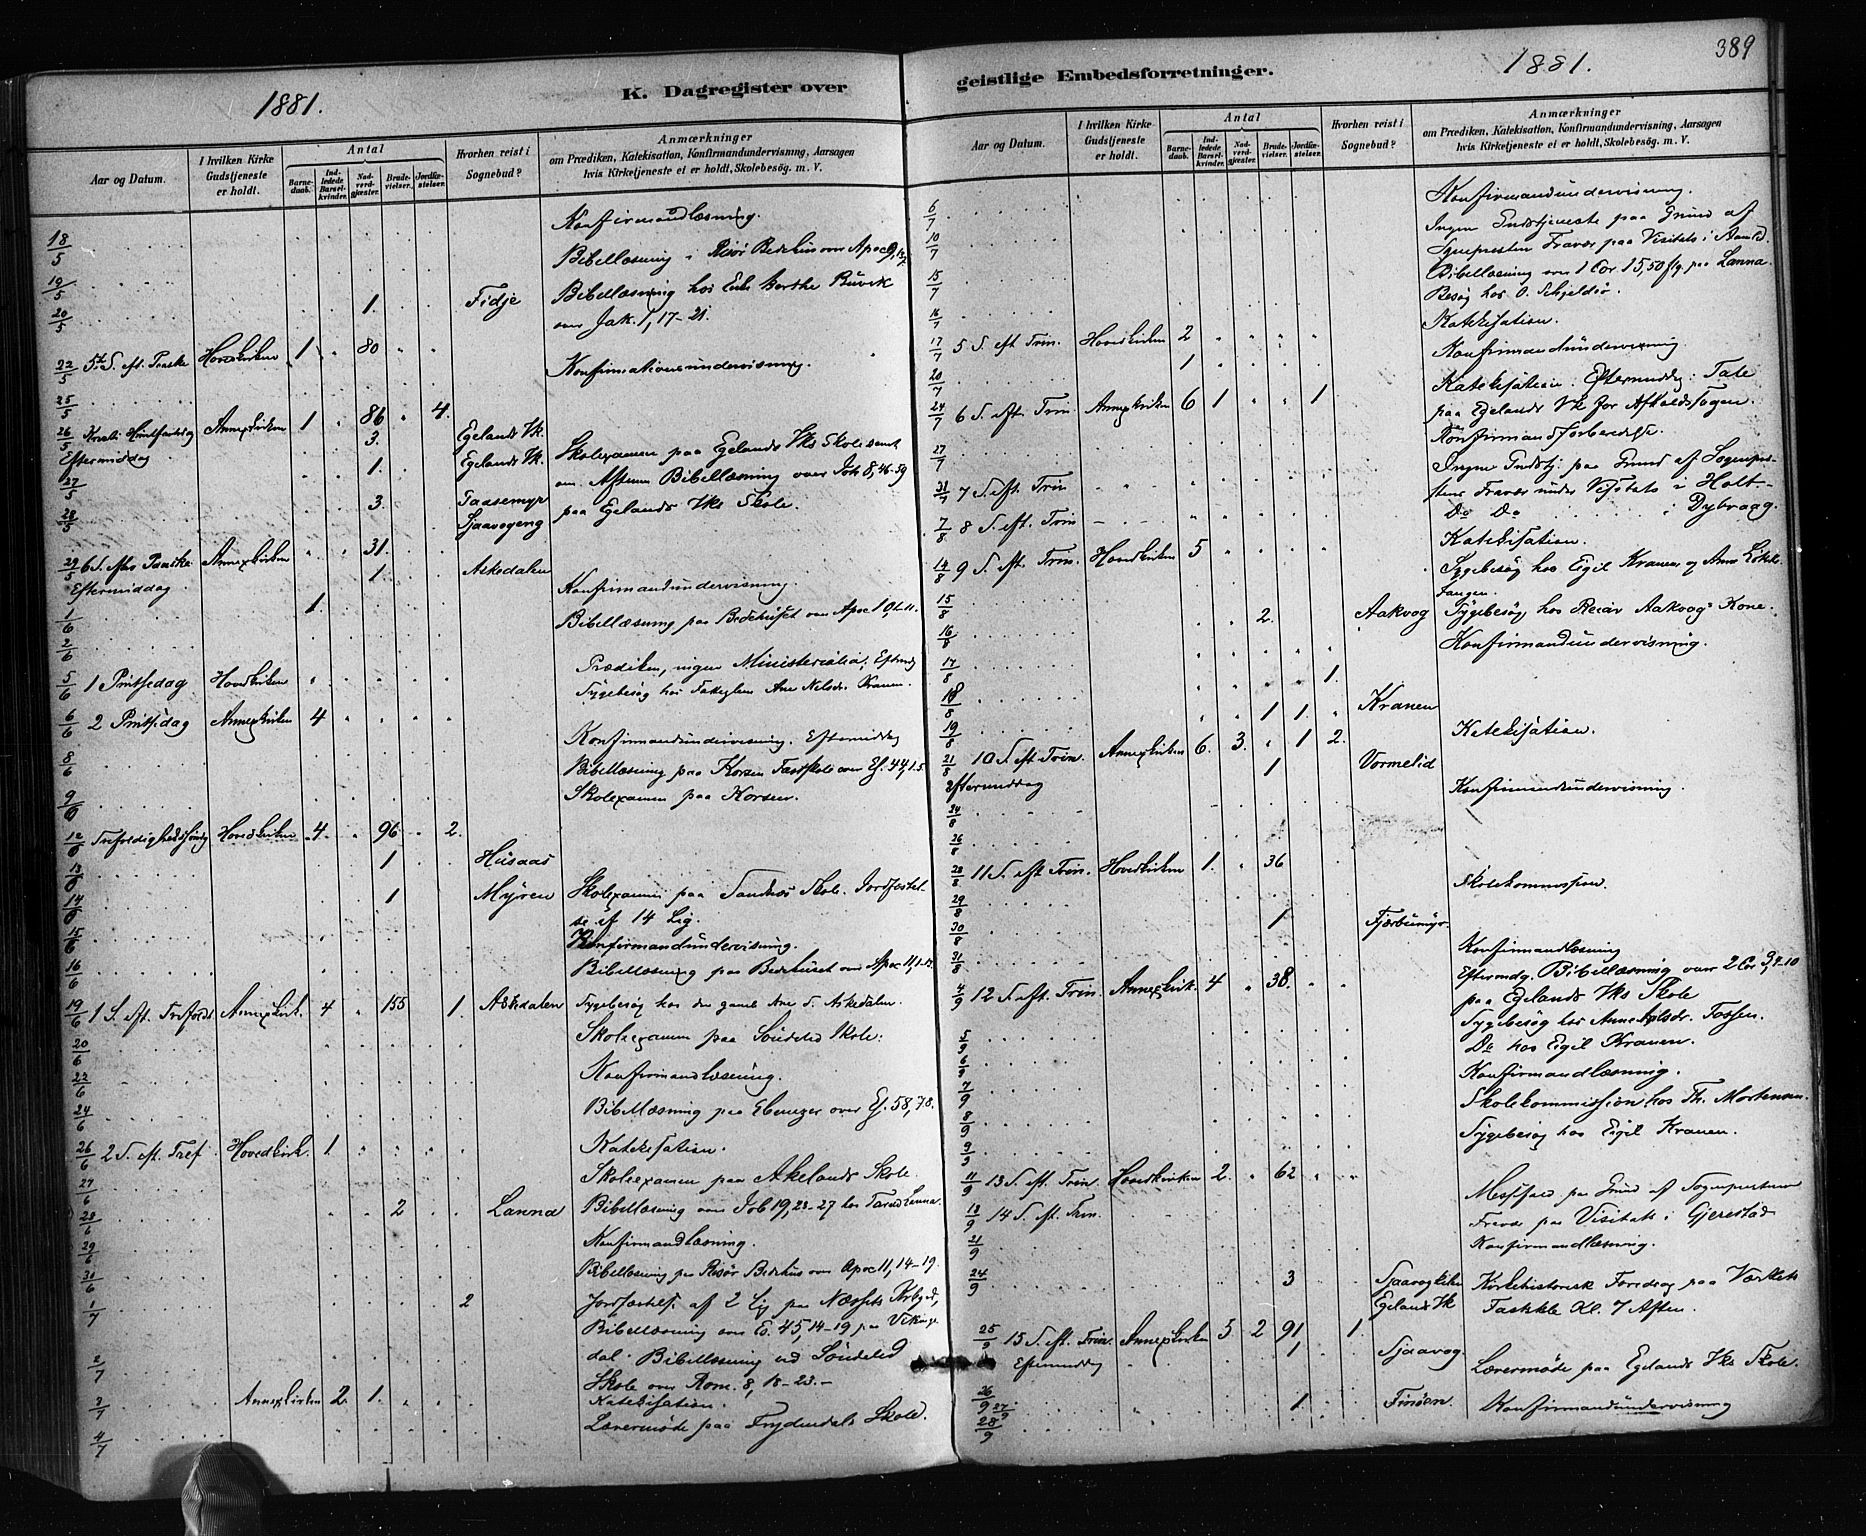 1881.
K. Dagregister over
Aar og Datum.
I hvilken Kirke Gudstjeneste er holdt.
Antal
Barnedaab.
Indledede Barselkvinder.
Nadverdgjæster.
Brudevielser.
Jordfæstelser.
Hvorhen reist i Sognebud?
Anmærkninger
om Prædiken, Katekisation, Konfirmandundervisning, Aarsagen
hvis Kirketjeneste ei er holdt, Skolebesøg. m. V.
18/5 Konfirmandlæsning.
19/5 Bibellæsning i Risør Bedehus over Apoc 9,
20/5 1. Fidje Bibellæsning hos Enke Berthe
over Jak. 1, 17-21.
22/5 5te S. eft. Paaske Hovedkirken 1 80
25/5 Konfirmationsundervisning.
26/5 Kristi Himmelfartsdag Annexkirken 1 86 4.
Eftermiddag 3. Egelands Vk.
27/5 1. Egelands Vk. Skolexamen paa Egelands Vks Skole samt
om Aftenen Bibellæsning over Joh 8, 46-59
28/5 3. Taasemyr paa Egelands Vks Skole.
Sjaavogeng
29/5 6 S. efter Paaske Annexkirken 31.
Eftermiddag 1. Askedalen
1/6 1. Konfirmandundervisning.
2/6 Bibellæsning paa Bedehuset over Apoc 10, 1-11.
5/6 1 Pintsedag Hovedkirken Prædiken, ingen Ministerialia; Efterm
Sygebesøg hos Ane Nilsdr. Kranen.
6/6 2 Pintsedag Annexkirken 4
8/6 Konfirmandundervisning. Eftermiddag
Bibellæsning paa Korsen Fastskole over Es. 44, 1-5.
9/6 Skolexamen paa Korsen.
12/6 Trefoldighedssøndag Hovedkirken 4. 96 2.
13/6 1 Husaas
14/6 1 Myren Skolexamen paa Sandnes Skole. Jordfæstel-
se af 14 Lig.
15/6 Konfirmandundervisning.
16/6 Bibellæsning paa Bedehuset over Apoc 11, 1-13.
19/6 1 S. eft. Trefold. Annexkirk. 4 155 1. Askedalen Sygebesøg hos den gamle Ane S. Askedalen.
20/6 Skolexamen paa Søndeled Skole.
22/6 Konfirmandlæsning.
24/6 Bibellæsning paa Ebenezer over Es. 58, 7-8.
26/6 2 S. eft. Tref. Hovedkirk. 1 Katekisation.
27/6 Skoleexamen paa Akelands Skole
28/6 2 Lanna Bibellæsning over Job 19, 23-27 hos Lanna.
29/6 Konfirmandlæsning.
30/6 Bibellæsning paa Risør Bedehus over Apoc 11, 14-19.
1/7 2 Jordfæstelse af 2 Lig paa Næssets Kirkegd,
Bibellæsning over Es. 45, 14-19 paa Vikings-
2/7 dal. Bibellæsning ved Søndeled
Skole over Rom. 8, 18-23.-
3/7 Annexkirken 2. 1. Katekisation.
4/7 Lærermøde paa Frydendals Skole.
389
geistlige Embedsforretninger.
1881.
Aar og Datum.
I hvilken Kirke Gudstjeneste er holdt.
Antal
Barnedaab.
Indledede Barselkvinder.
Nadverdgjæster.
Brudevielser.
Jordfæstelser.
Hvorhen reist i Sognebud?
Anmærkninger
om Prædiken, Katekisation, Konfirmandundervisning, Aarsagen
hvis Kirketjeneste ei er holdt, Skolebesøg. m. V.
6/7 Konfirmandundervisning.
10/7 Ingen Gudstjeneste paa Grund af
Sognepresten Fravær paa Visitats i
15/7 Bibellæsning over 1 Cor 15, 50 flg. paa Lanna.
16/7 Besøg hos O. Schjeldsø.
17/7 5 S. eft. Trin. Hovedkirken 2 Katekisation.
20/7 1 Konfirmandundervisning
24/7 6 S. eft. Trin Annexkirken 6 1 1 Katekisation. Eftermiddag: Tale
paa Egelands Vk for Afholdssagen.
27/7 Konfirmandforberedelse.
31/7 7 S. eft. Trin Ingen Gudstj. paa Grund af Sognepre-
stens Fravær under Visitats i Holt-
7/8 8 S. eft. Trin Do Do i Dybvaag.
14/8 9 S. eft. Trin. Hovedkirken 5 Katekisation.
15/8 Sygebesøg hos Eigil Kranen og Anne
Tangen.
16/8 2. Aakvog Sygebesøg hos Aakvogs Kone.
17/8 Konfirmandundervisning.
18/8 1.
19/8 1 1. Kranen
21/8 10 S. eft Trin. Annexkirken 6. 3. 1 2. Katekisation.
Eftermiddag 1 Vormelid
24/8 Konfirmandundervisning.
26/8
28/8 11 S. eft. Trin. Hovedkirken 1. 36
29/8 Skolekommission.
30/8 1 Fjærbumyr.
31/8 Konfirmandlæsning
4/9 12 S. eft. Trin. Annexkirk. 4 38. Eftermdg. Bibellæsning over 2 Cor 3, 4-10
paa Egelands Vks Skole
5/9 Sygebesøg hos Anne Nilsdr. Fossen.
6/9 Do hos Eigil Kranen.
7/9 Konfirmandlæsning.
8/9 Skolekommission hos Th. Mortensen.
9/9 Sygebesøg hos Eigil Kranen.
11/9 13 S. eft. Trin. Hovedkirken 2. 62
18/9 14 S. eft. Trin. Messefald paa Grund af Sogneprestens
Fravær paa Visitats i Gjerestad
21/9 Konfirmandlæsning.
24/9 3 Sjaavogkilen Kirkehistorisk Foredrag paa Værkets
Egelands Vk Kl. 7 Aften.
25/9 15 S. eft. Trin. Annexkirken 5 2 91 1.
Eftermiddag 1 Sjaavog
26/9 Lærermøde paa Egelands Vks Skole.
27/9 1
28/9 Konfirmandundervisning